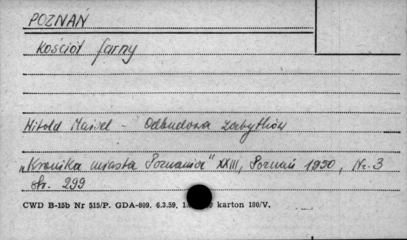 POZNAŃ
Kościół farny
Witold Maisel - Odbudowa zabytków
„Kronika miasta Poznania" XXIII, Poznań 1950, Nr. 3
str. 299
CWD B-15b Nr 515/P. GDA-809. 6.3.59, karton 180/V.